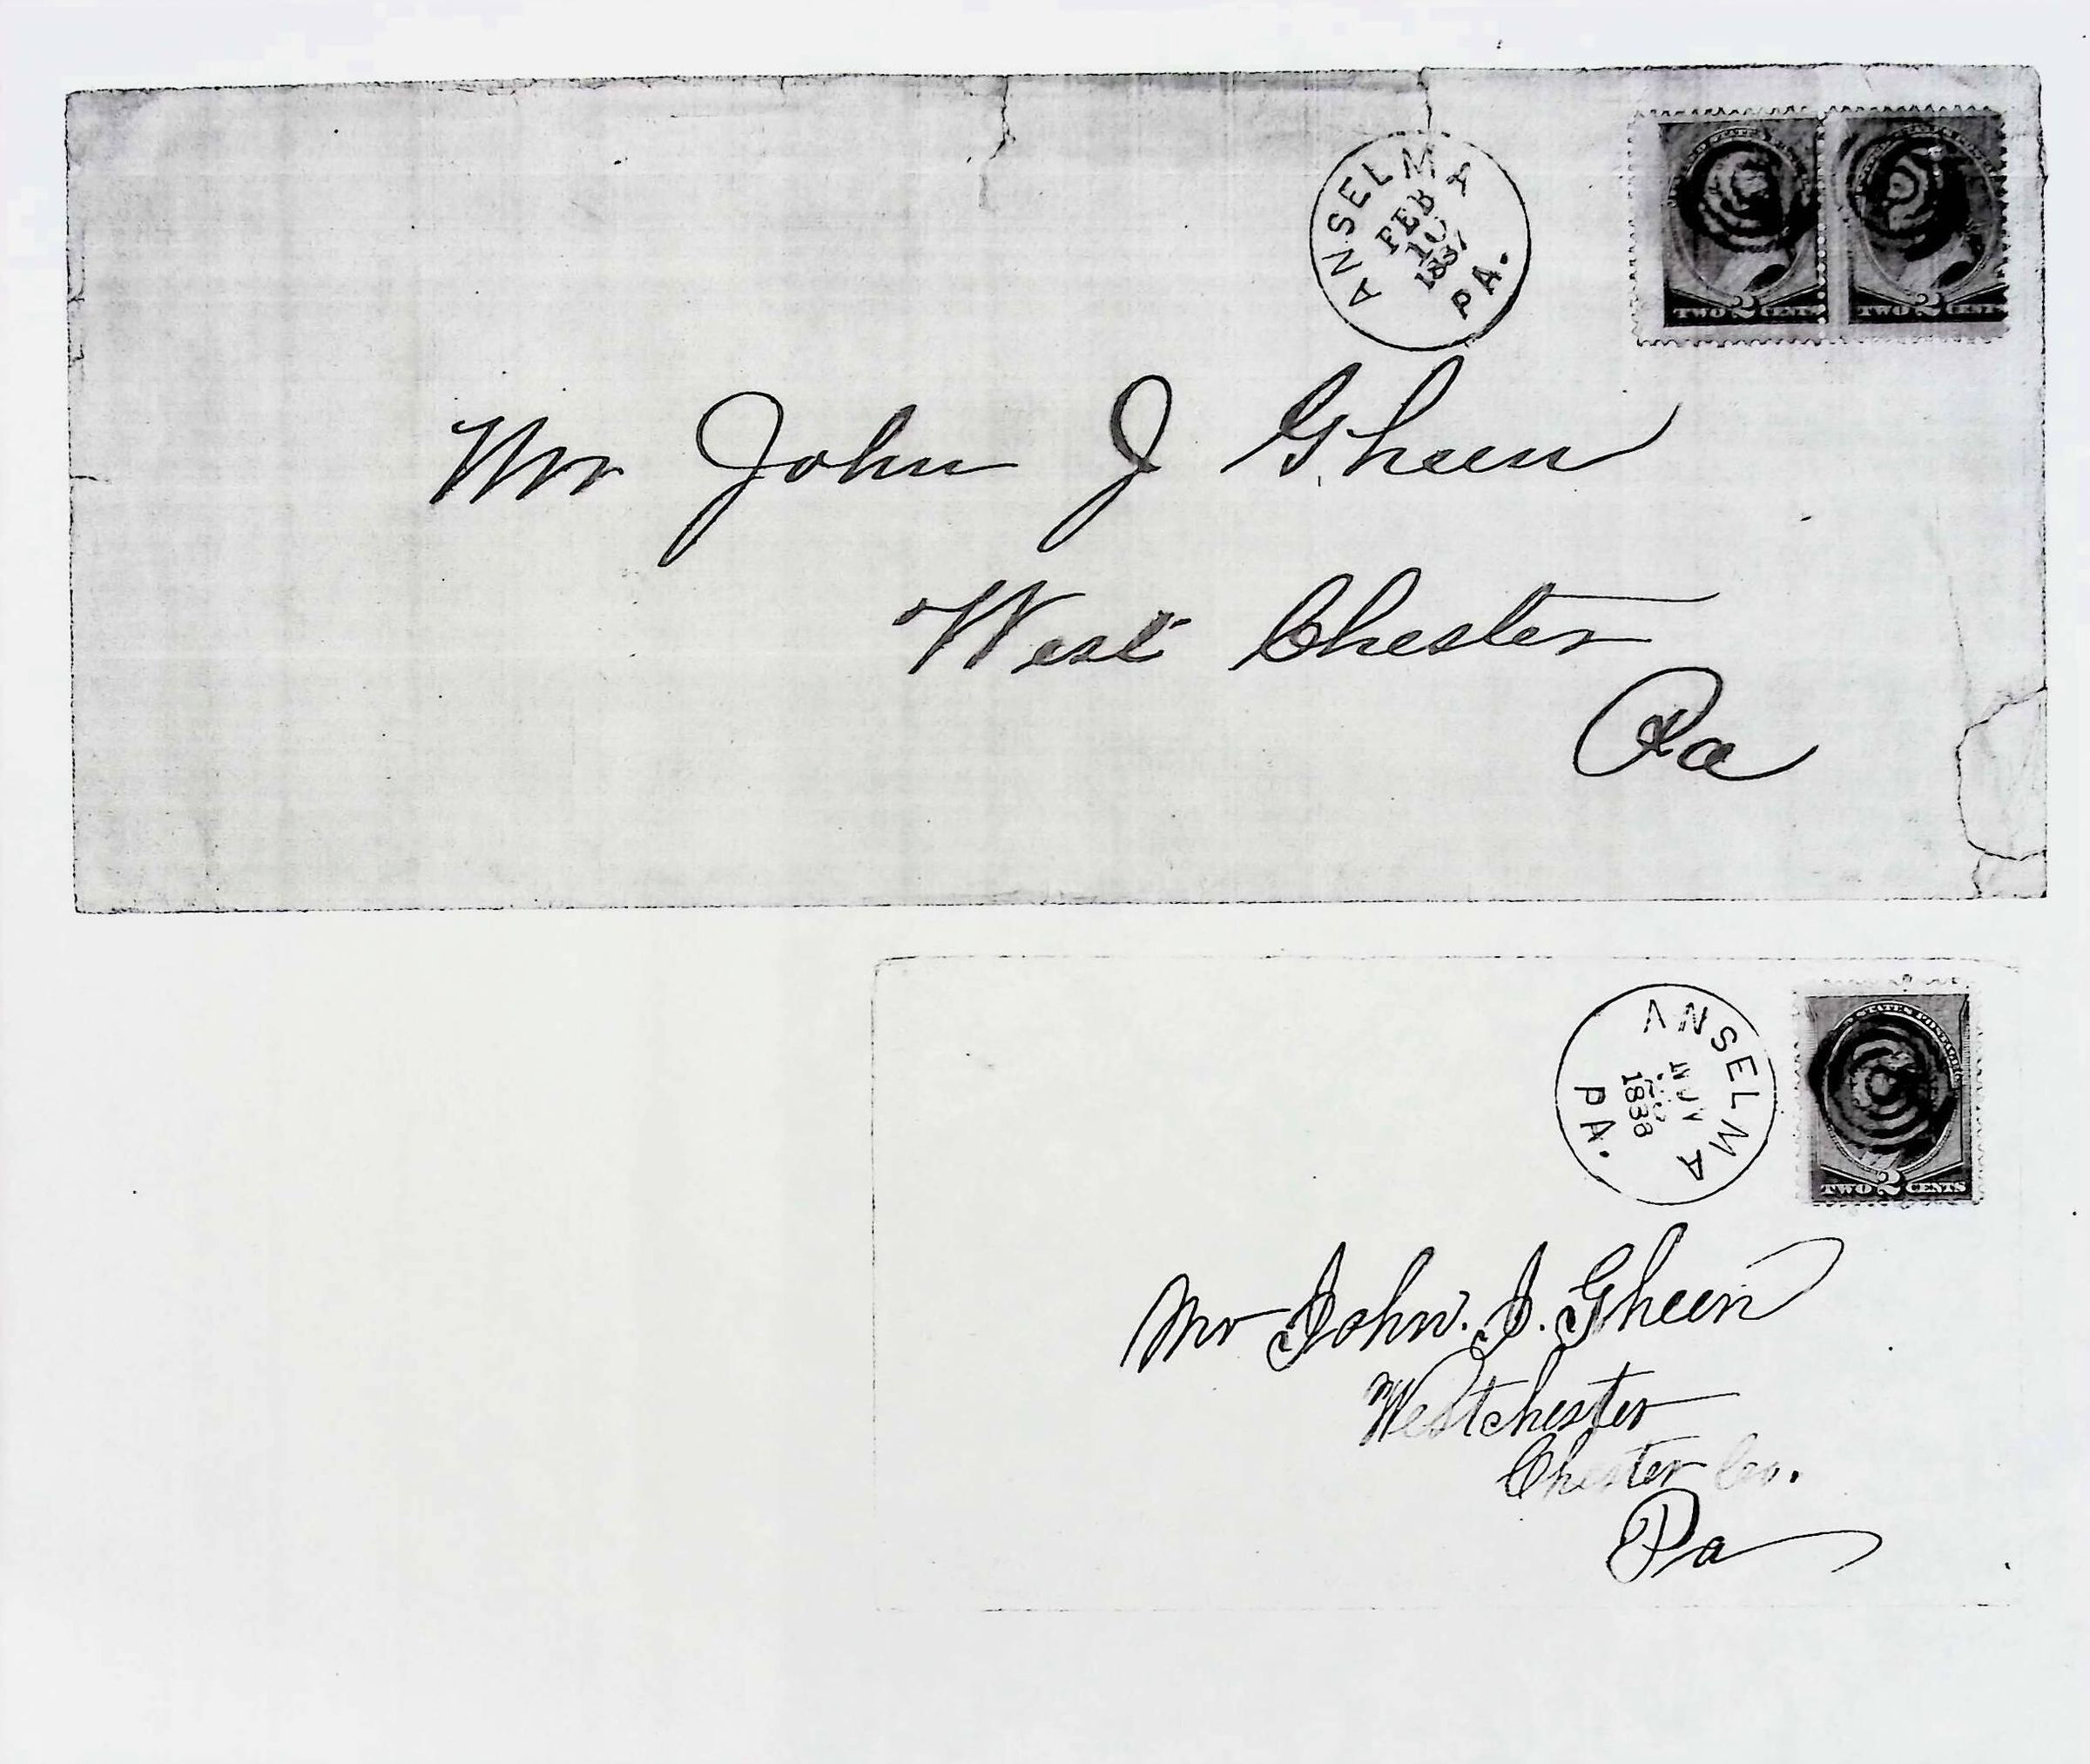 ANSELMA
FEB
10
1887
PA.
TWO 2 CENTS
TWO 2 CENTS
Mr John J Gheen
West Chester
Pa
ANSELMA
1888
PA.
UNITED STATES POSTAGE
TWO 2 CENTS
Mr John. J. Gheen
Westchester
Chester Co.
Pa